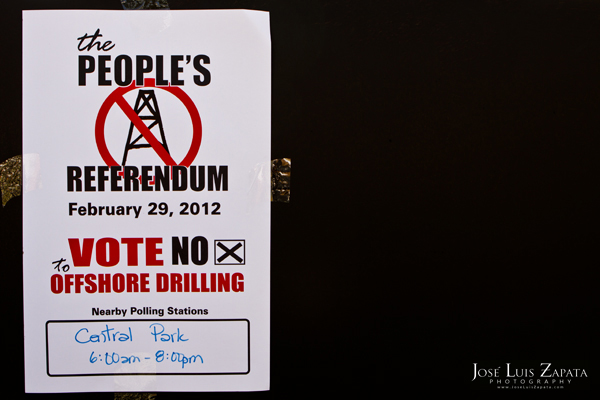 the
PEOPLE'S
REFERENDUM
February 29, 2012
VOTE NO
to
OFFSHORE DRILLING
Nearby Polling Stations
Central Park
6:00am - 8:00pm
JOSÉ LUIS ZAPATA
PHOTOGRAPHY
www.joseluiszapata.com